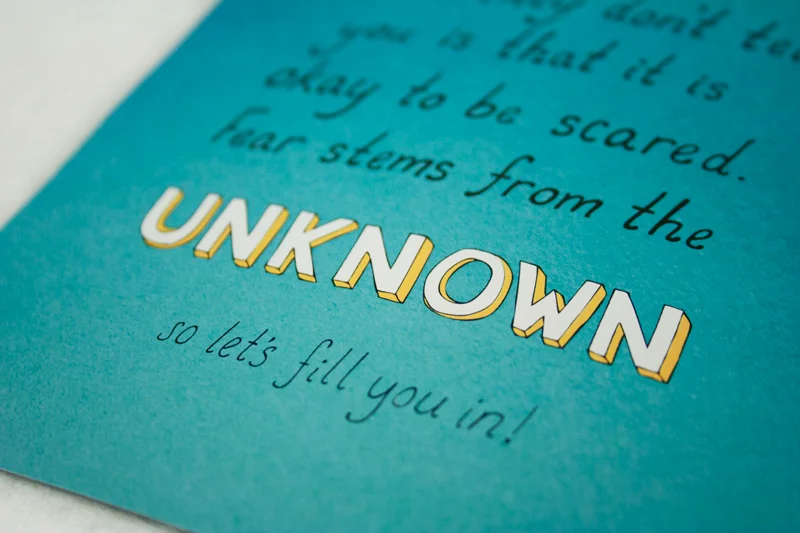 they don't
you is that it is
okay to be scared.
Fear stems from the
UNKNOWN
so let's fill you in!